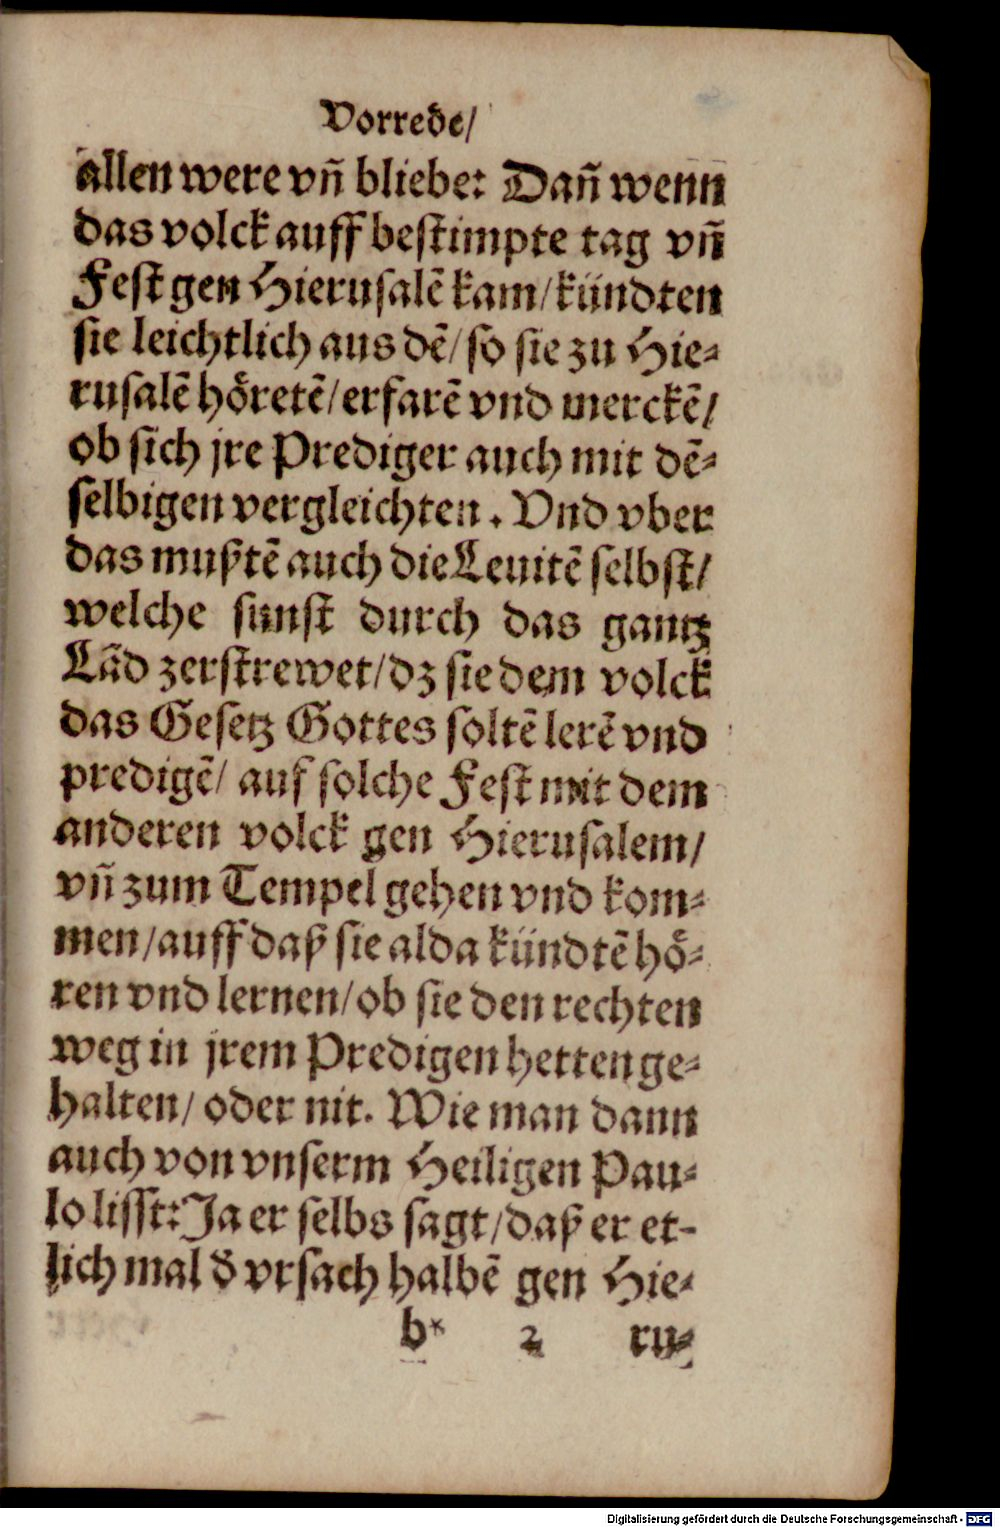 Vorrede/
allen were vñ bliebe: Dañ wenn
das volck auff bestimpte tag vñ
Fest gen Hierusalẽ kam/kündten
sie leichtlich aus dẽ/so sie zu Hie-
rusalẽ hoͤretẽ/erfarẽ vnd merckẽ/
ob sich jre Prediger auch mit dẽ-
selbigen vergleichten. Vnd vber
das mußtẽ auch die Leuitẽ selbst/
welche sunst durch das gantz
Lãd zerstrewet/dz sie dem volck
das Gesetz Gottes soltẽ lerẽ vnd
predigẽ/ auf solche Fest mit dem
anderen volck gen Hierusalem/
vñ zum Tempel gehen vnd kom-
men/auff daß sie alda kündtẽ hoͤ-
ren vnd lernen/ob sie den rechten
weg in jrem Predigen hetten ge-
halten/ oder nit. Wie man dann
auch von vnserm Heiligen Pau-
lo lisst: Ja er selbs sagt/daß er et-
lich mal d̕ vrsach halbẽ gen Hie-
b* 2 ru-
Digitalisierung gefördert durch die Deutsche Forschungsgemeinschaft - DFG